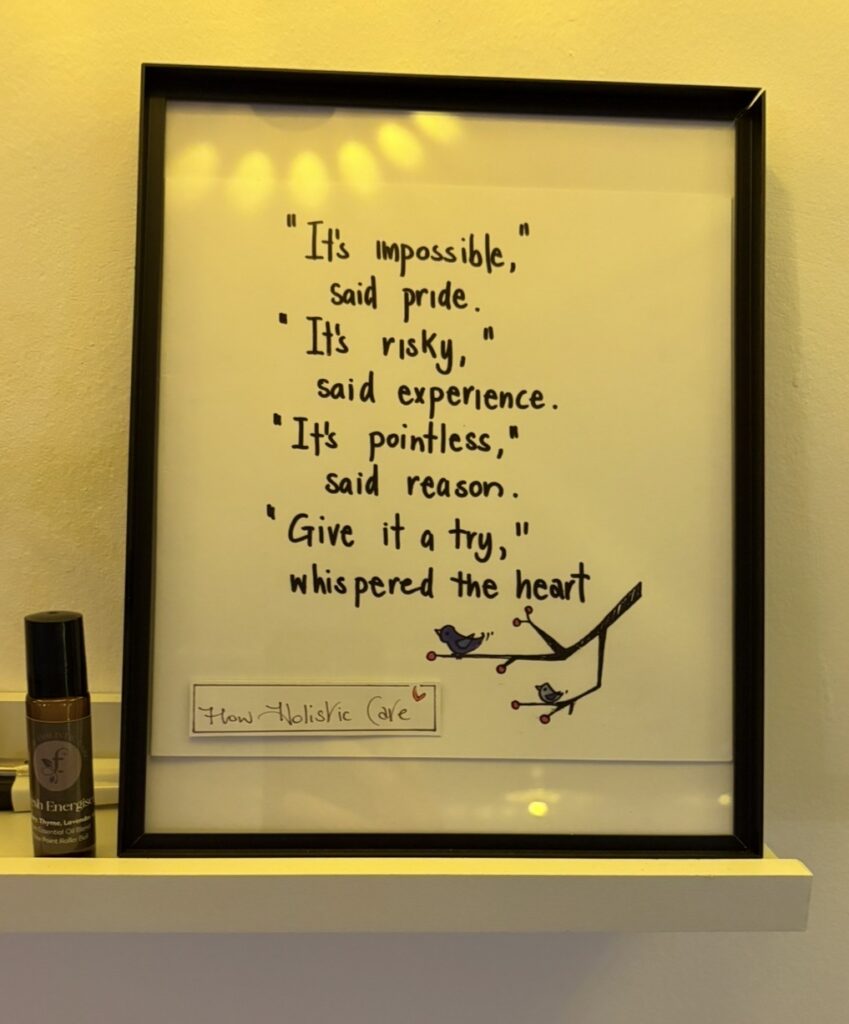 "It's impossible,"
said pride.
"It's risky,"
said experience.
"It's pointless,"
said reason.
"Give it a try,"
whispered the heart
Flow Holistic Care
f
Energise
Thyme, Lavender
Essential Oil Blend
Point Roller Ball